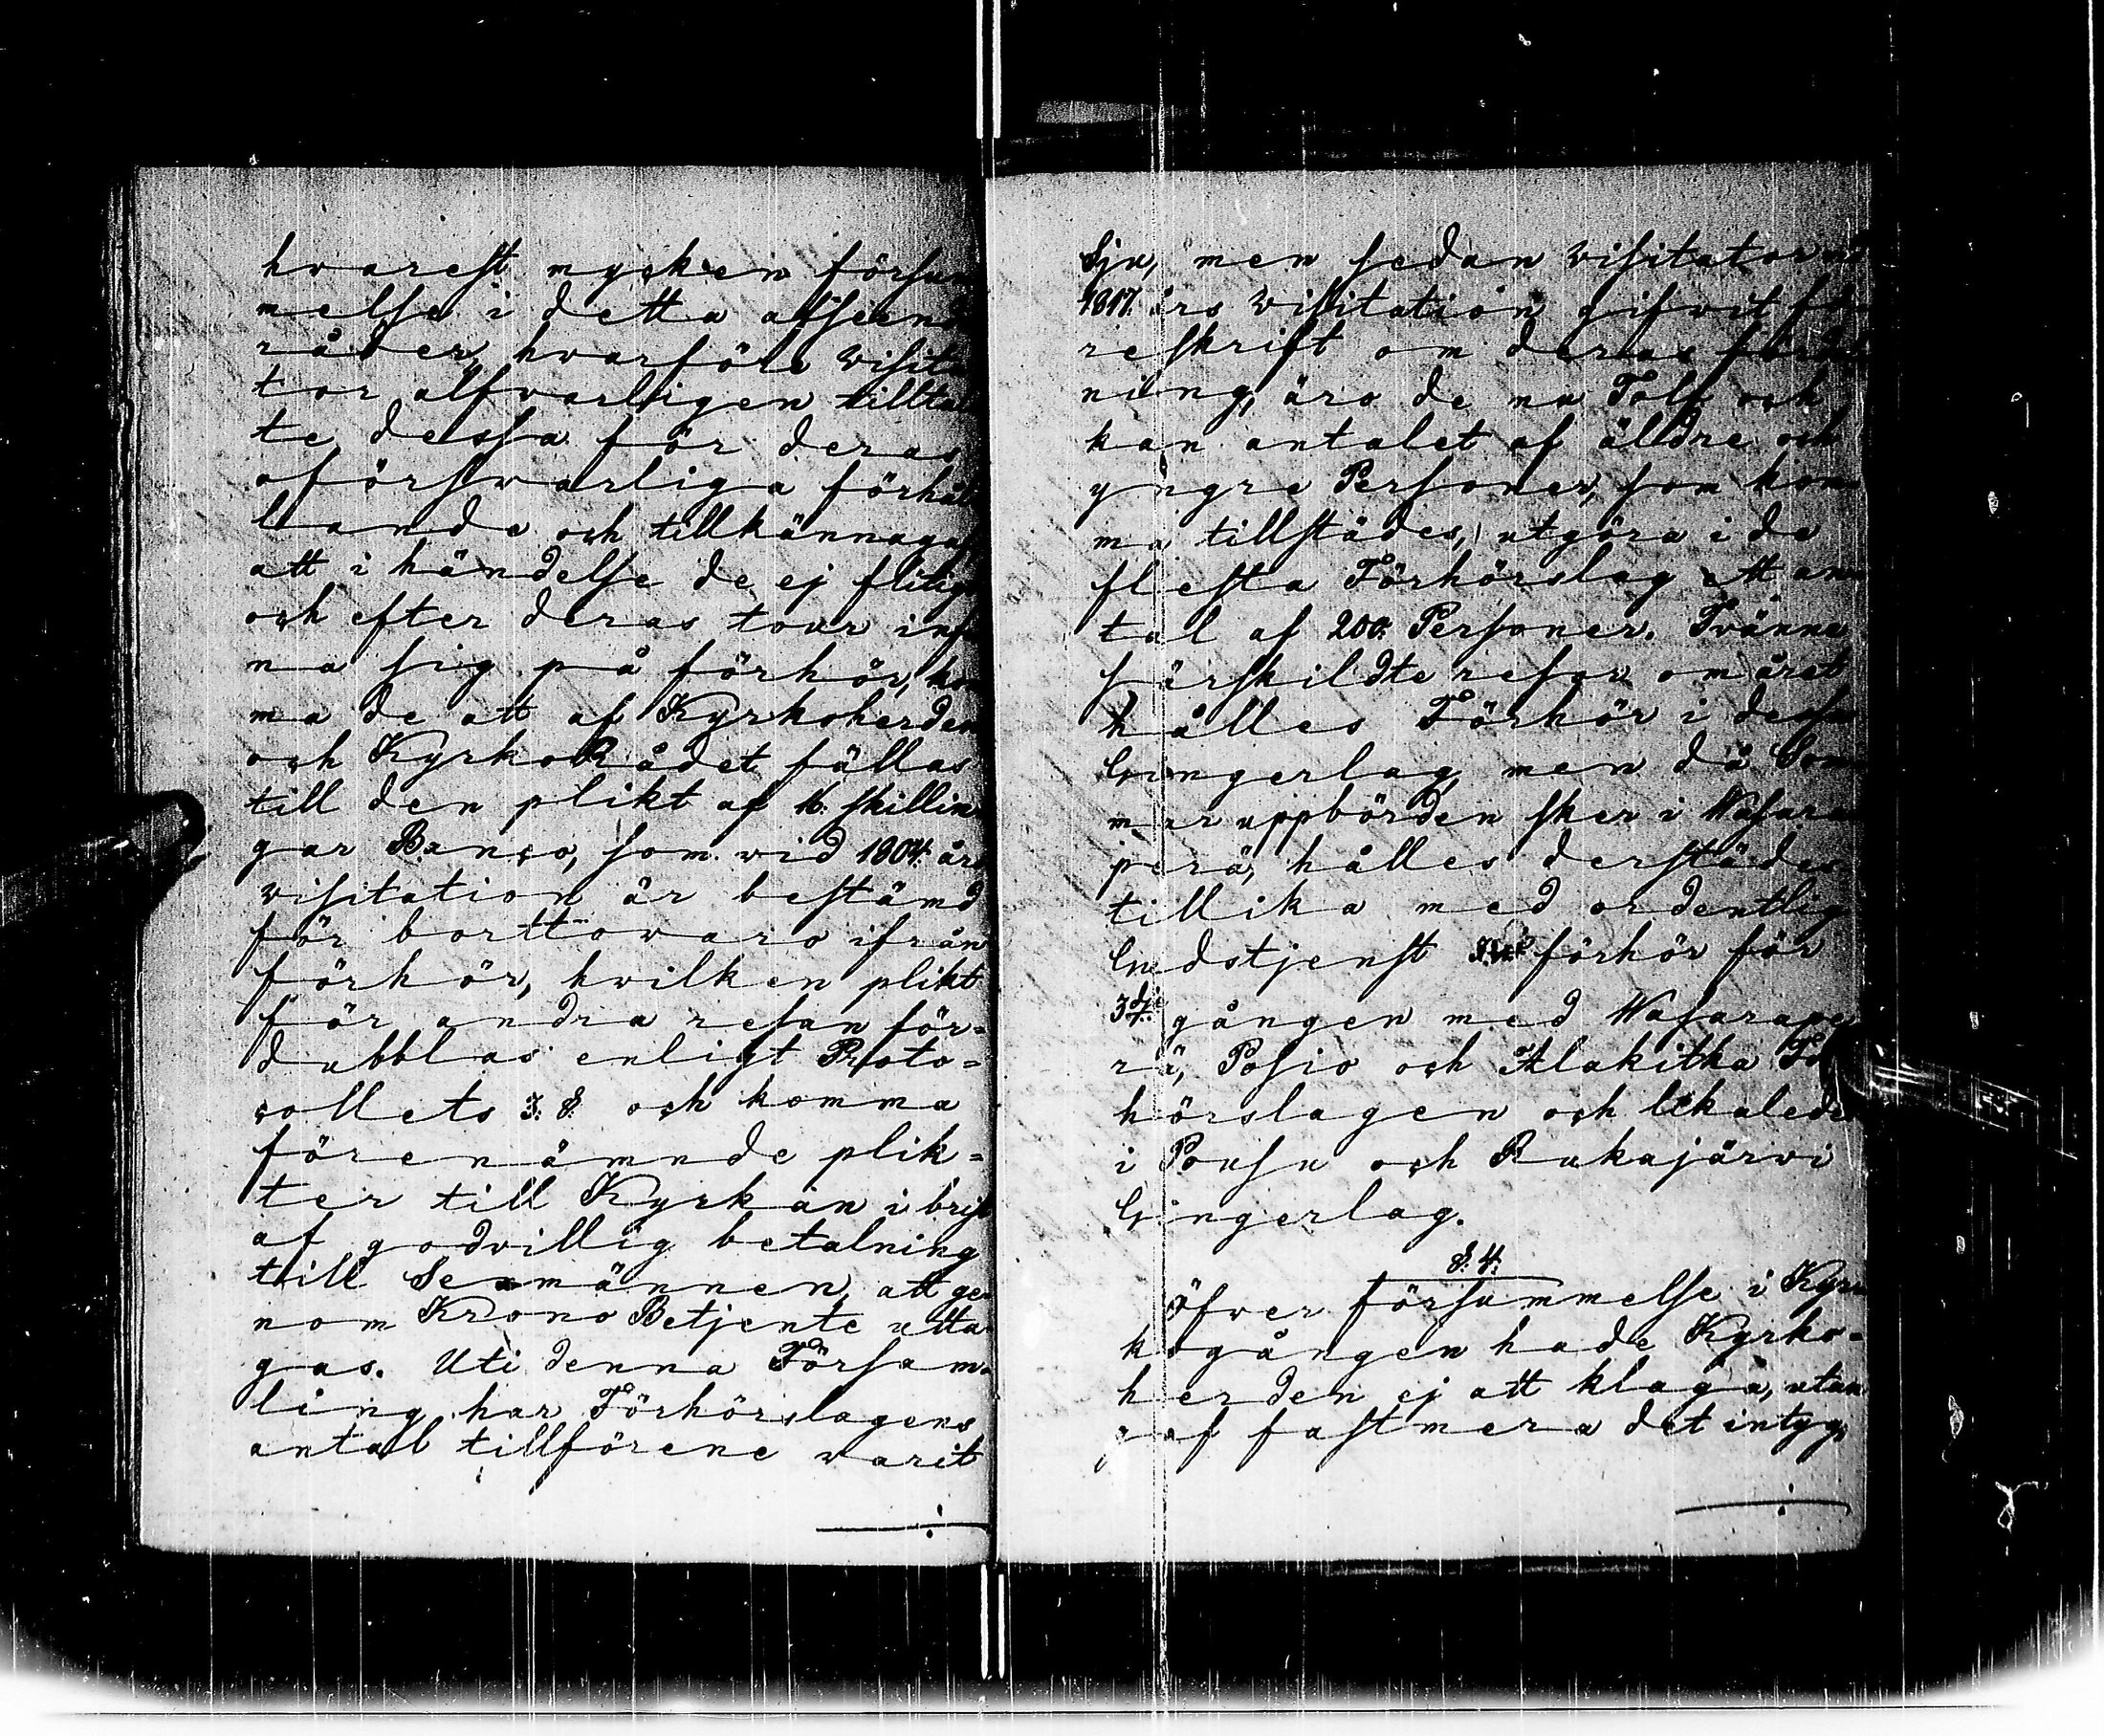 hvarest mycken försum
melse i detta afseende
råder, hvarföre visita
tor alfvarligen tillta
te dessa för deras
oförsvarliga förhål
lande och tillkännagaf
att i händelse de ej flitigt
och efter deras tour infin
na sig på förhör, kom
ma de att af Kyrkoherden
och KyrkoRådet fällas
till den plikt af 16. skillin
gar Banco, som vid 1804. års
visitation är bestämd
för borttovaro ifrån
förhör, hvilken plikt
för andra resan för=
dubblas enligt Proto=
collets 3. §. och komma
förenämnde plik=
ter till Kyrkan i brist
af godvillig betalning
till Sexmännen, att ge
nom Krono Betjente utta
gas. Uti denna Försam=
ling har Förhörslagens
antal tillförene varit
Sju, men sedan visitator vid
1817. års visitation gifvit fö
reskrift om deras fördel
ning, äro de nu Tolf och
kan antalet af äldre och
yngre Personer, som kom
ma tillstädes, utgöra i de
flesta Förhörslag ett an
tal af 200. Personer. Tvänne
särskildte resor om året
hålles Förhör i dessa
Gingerlag, men då Som
mar uppbörden sker i Wasara
perä, hålles derstädes
tillika med ordentlig
Gudstjenst förhör för
3dje gången med Wasarape
rä, Posio och Alakitka Fö
hörslagen och likaledes
i Pousu och Rukajärvi
Gingerlag.
§. 4.
Öfver försummelse i Kyr
kogången hade Kyrko=
herden ej att klaga, utan
gaf fastmera det intyg,